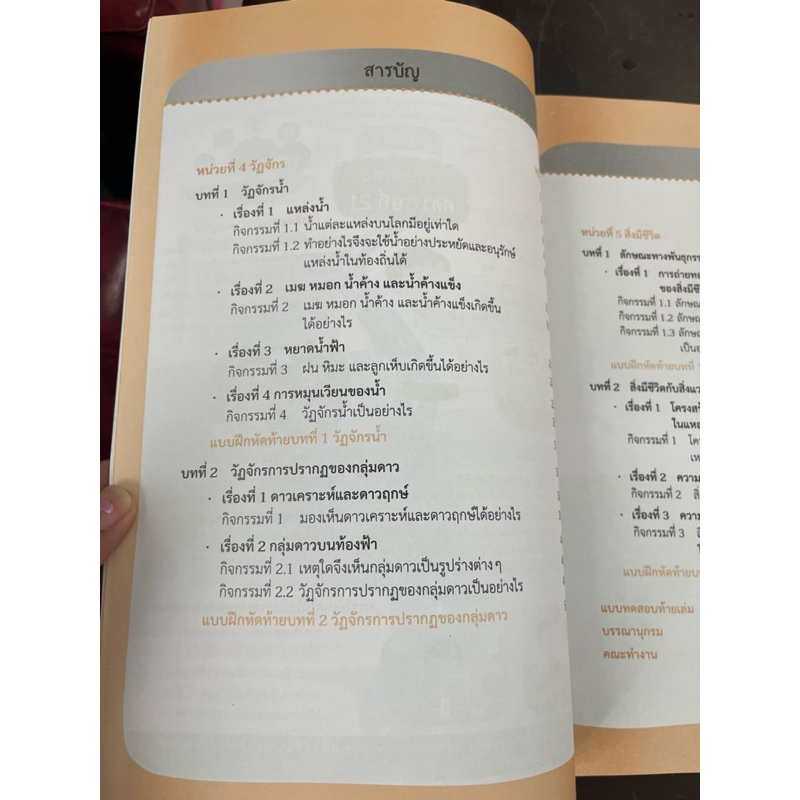 สารบัญ
หน่วยที่ 4 วัฏจักร
บทที่ 1 วัฏจักรน้ำ
· เรื่องที่ 1 แหล่งน้ำ
กิจกรรมที่ 1.1 น้ำแต่ละแหล่งบนโลกมีอยู่เท่าใด
กิจกรรมที่ 1.2 ทำอย่างไรจึงจะใช้น้ำอย่างประหยัดและอนุรักษ์
แหล่งน้ำในท้องถิ่นได้
· เรื่องที่ 2 เมฆ หมอก น้ำค้าง และน้ำค้างแข็ง
กิจกรรมที่ 2 เมฆ หมอก น้ำค้าง และน้ำค้างแข็งเกิดขึ้น
ได้อย่างไร
· เรื่องที่ 3 หยาดน้ำฟ้า
กิจกรรมที่ 3 ฝน หิมะ และลูกเห็บเกิดขึ้นได้อย่างไร
· เรื่องที่ 4 การหมุนเวียนของน้ำ
กิจกรรมที่ 4 วัฏจักรน้ำเป็นอย่างไร
แบบฝึกหัดท้ายบทที่ 1 วัฏจักรน้ำ
บทที่ 2 วัฏจักรการปรากฏของกลุ่มดาว
· เรื่องที่ 1 ดาวเคราะห์และดาวฤกษ์
กิจกรรมที่ 1 มองเห็นดาวเคราะห์และดาวฤกษ์ได้อย่างไร
· เรื่องที่ 2 กลุ่มดาวบนท้องฟ้า
กิจกรรมที่ 2.1 เหตุใดจึงเห็นกลุ่มดาวเป็นรูปร่างต่าง ๆ
กิจกรรมที่ 2.2 วัฏจักรการปรากฏของกลุ่มดาวเป็นอย่างไร
แบบฝึกหัดท้ายบทที่ 2 วัฏจักรการปรากฏของกลุ่มดาว
หน่วยที่ 5 สิ่งมีชีวิต
บทที่ 1 ลักษณะทางพันธุกรร
· เรื่องที่ 1 การถ่ายทอ
ของสิ่งมีชี
กิจกรรมที่ 1.1 ลักษณ
กิจกรรมที่ 1.2 ลักษณ
กิจกรรมที่ 1.3 ลักษณ
เป็นอ
แบบฝึกหัดท้ายบทที่
บทที่ 2 สิ่งมีชีวิตกับสิ่งแว
· เรื่องที่ 1 โครงสร้
ในแหล
กิจกรรมที่ 1 โค
เห
· เรื่องที่ 2 ความ
กิจกรรมที่ 2 สิ่
· เรื่องที่ 3 ความ
กิจกรรมที่ 3
แบบฝึกหัดท้ายบ
แบบทดสอบท้ายเล่ม
บรรณานุกรม
คณะทำงาน